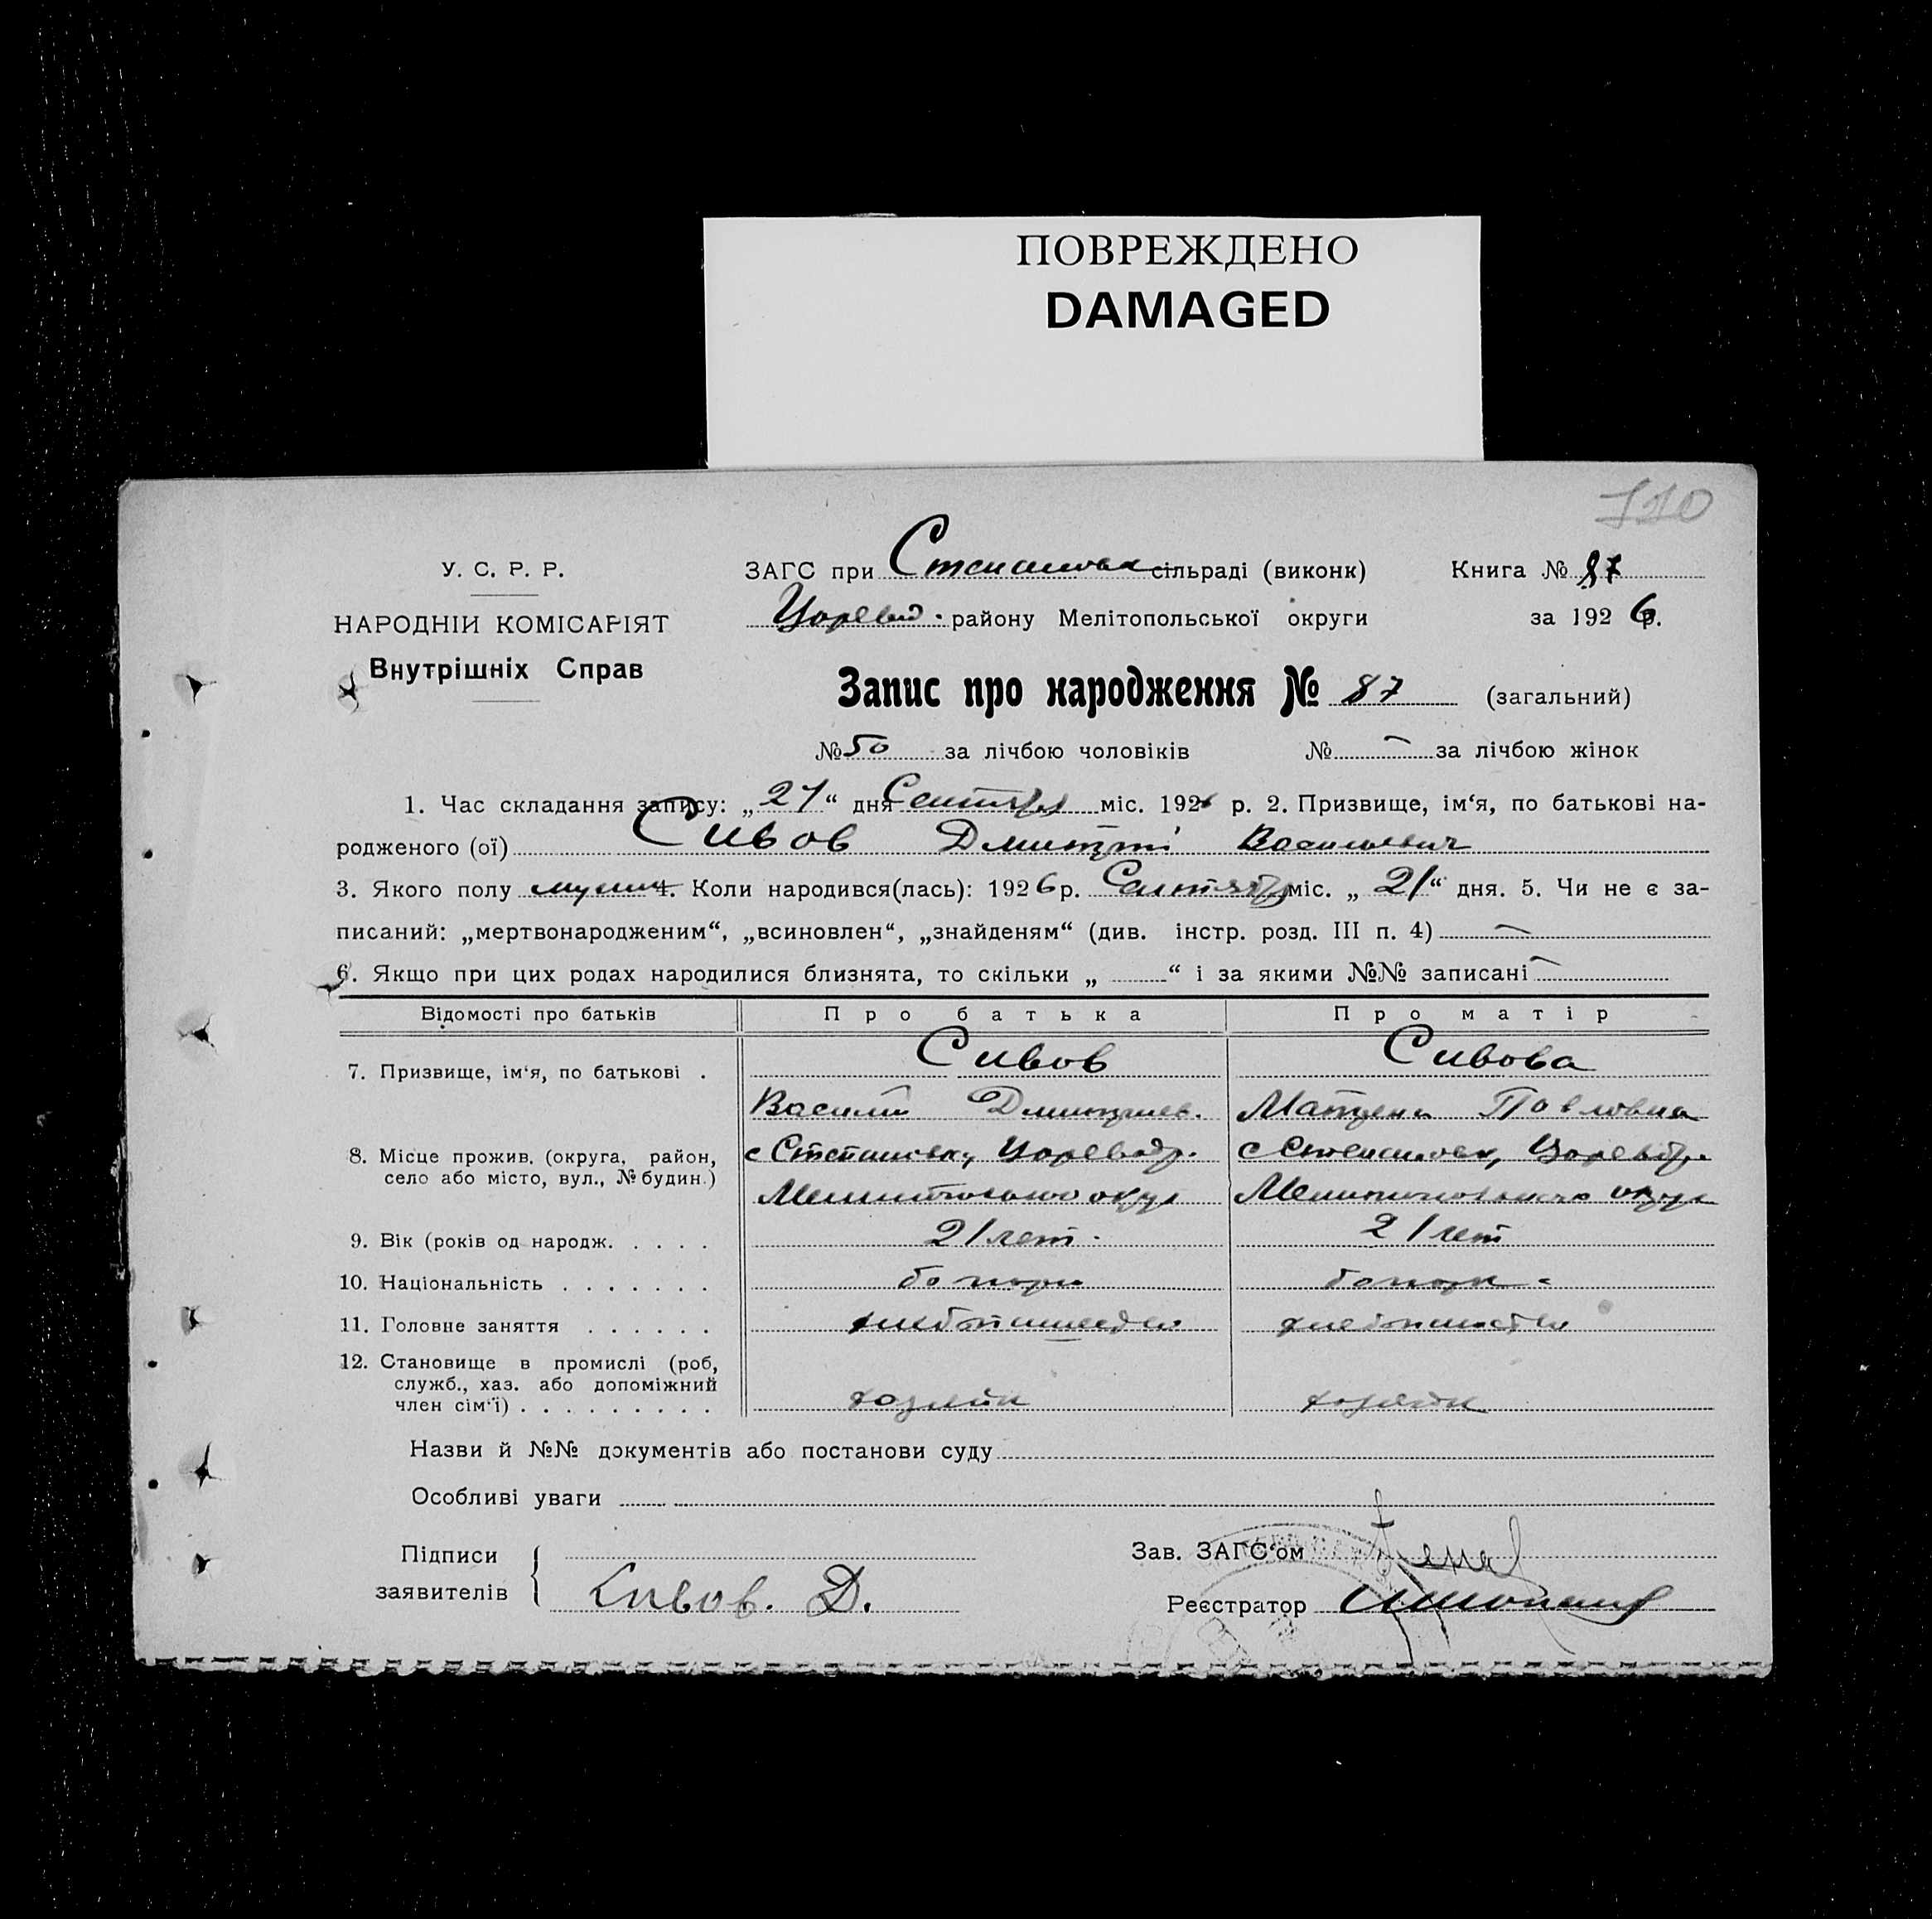 ПОВРЕЖДЕНО
DAMAGED
110
У. С. Р. Р.
НАРОДНІЙ КОМІСАРІЯТ
Внутрішніх Справ
ЗАГС при Степановск сільраді (виконк) Книга № 87
Царевод. району Мелітопольської округи за 1926 р.
Запис про народження № 87 (загальний)
№ 50 за лічбою чоловіків № — за лічбою жінок
1. Час складання запису: „27“ дня Сентября міс. 1926 р. 2. Призвище, ім‘я, по батькові на-
родженого (ої) Сивов Дмитрій Васильевич
3. Якого полу 4. Коли народився(лась): 1926 р. Сентябр міс. „21“ дня. 5. Чи не є за-
писаний: „мертвонародженим“, „всиновлен“, „знайденям“ (див. інстр. розд. III п. 4) —
6. Якщо при цих родах народилися близнята, то скільки „ “ і за якими №№ записані —
Відомості про батьків Про батька Про матір
7. Призвище, ім‘я, по батькові . Сивов Сивова
Василий Дмитриев. Матрена Павловна
8. Місце прожив. (округа, район, село або місто, вул., № будин.) с Степановка, Царевод р. с Степановка, Царевод р.
Мелитопольского округа Мелитопольского округа
9. Вік (років од народж. . . . . 21 лет. 21 лет
10. Національність . . . . . . .
11. Головне заняття . . . . . . хлебопашество хлебопашество
12. Становище в промислі (роб,
служб., хаз. або допоміжний
член сім‘ї) . . . . . . . . . хозяин
Назви й №№ документів або постанови суду
Особливі уваги
Підписи
заявителів Сивов. Д.
Зав. ЗАГС‘ом
Реєстратор